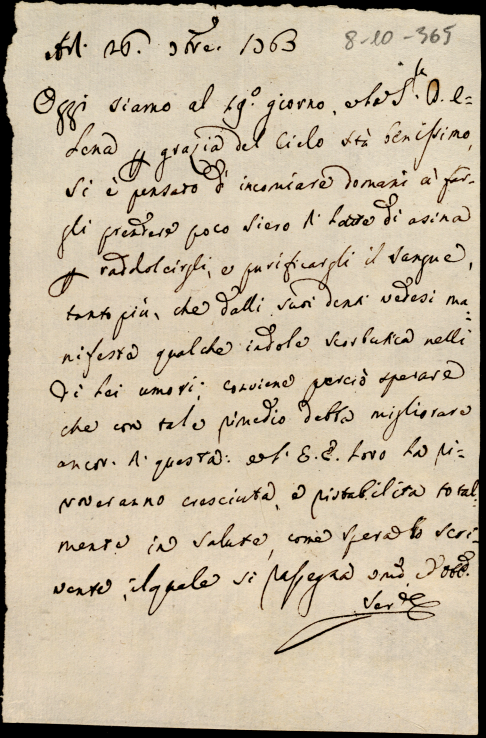 8-10-365
Adì. 26. 9bre. 1763
Oggi siamo al 19º giorno, e la S.ra D. E=
lena p grazia del Cielo stà benissimo,
si è pensato di incomiare domani à far-
gli prendere poco siero di latte di asina
p raddolcirgli, e purificargli il sangue,
tanto più, che dalli suoi denti vedesi ma=
nifesta qualche indole scorbutica nelli
di lei umori; conviene perciò sperare
che con tale rimedio debba migliorare
ancor di questa: e l' E.E. loro la ri=
troveranno cresciuta, e ristabilita total-
mente in salute, come spera lo scri=
vente, il quale si rassegna umo. d' obb.
Ser.e